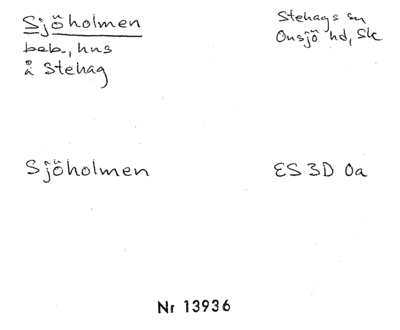 Sjöholmen
beb., hus
å Stehag
Stehags sn
Onsjö hd, Sk
Sjöholmen
ES 3D 0a
Nr 13936